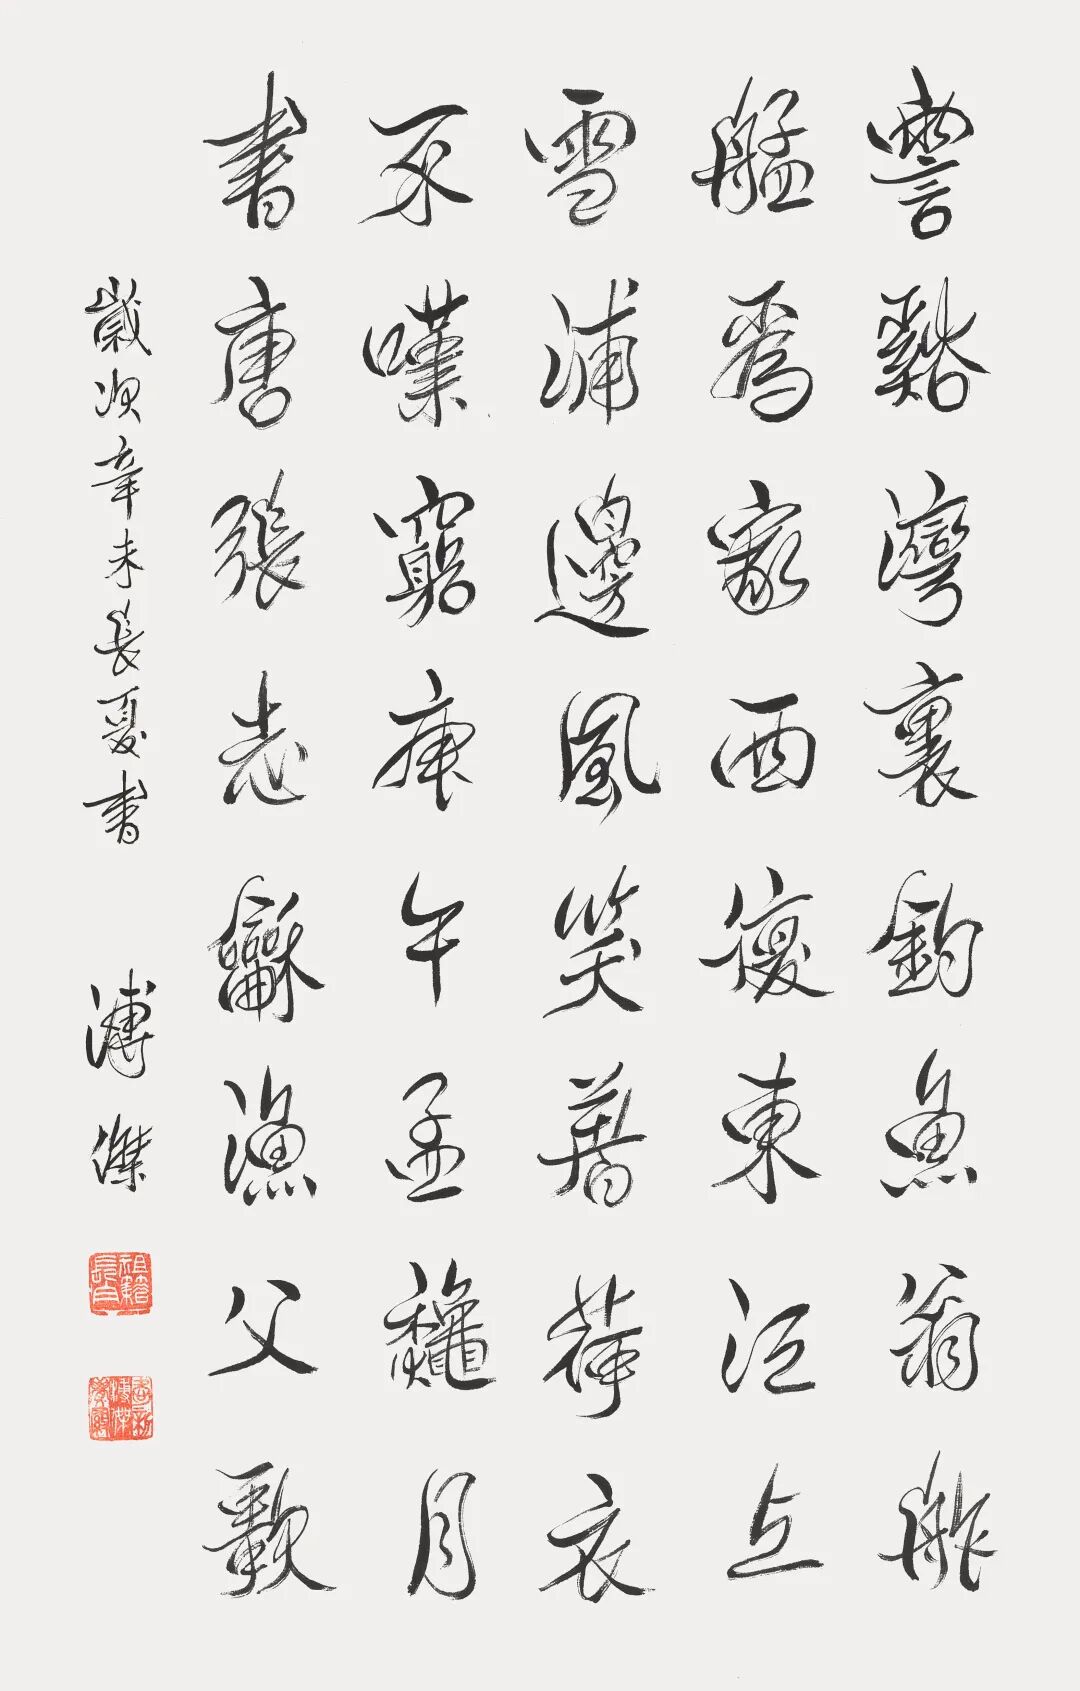 霅谿灣裏釣魚翁舴
艋爲家西復東江上
雪浦邊風笑著荷衣
不嘆窮庚午孟龝月
書唐張志龢漁父歌
歲次辛未長夏書 溥傑
祖籍長白